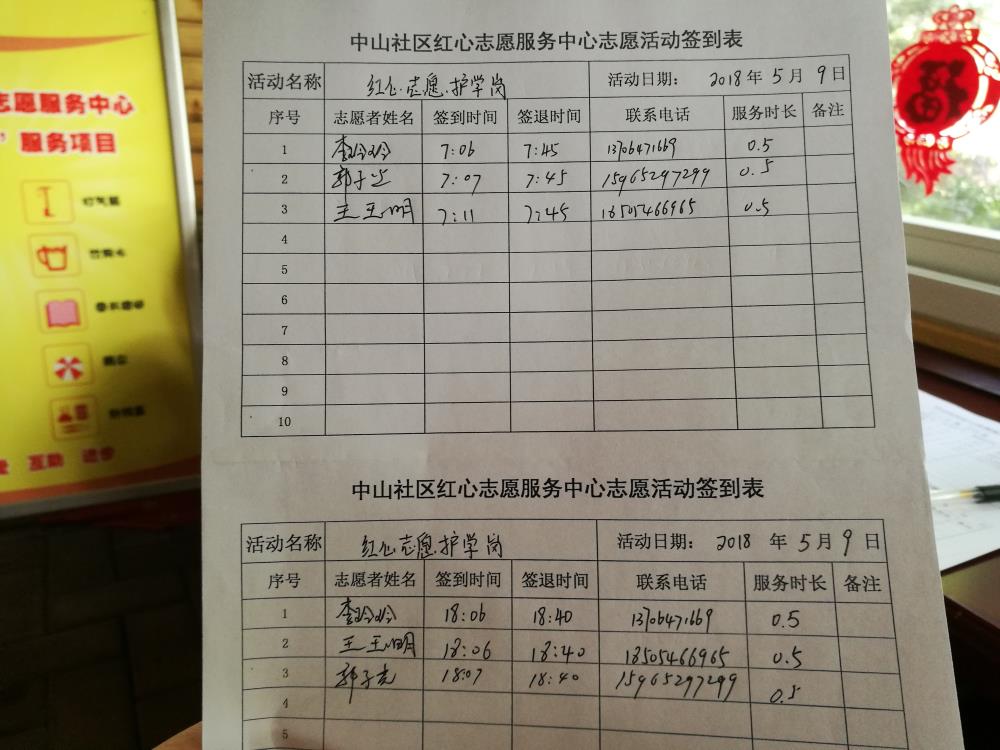 志愿服务中心
服务项目
互助 进步
中山社区红心志愿服务中心志愿活动签到表
活动名称 红心志愿.护学岗 活动日期: 2018年5月9日
序号 志愿者姓名 签到时间 签退时间 联系电话 服务时长 备注
1 李玲玲 7:06 7:45 13706471669 0.5
2 7:07 7:45 15965297299 0.5
3 7:11 7:45 18505466965 0.5
4
5
6
7
8
9
10
中山社区红心志愿服务中心志愿活动签到表
活动名称 红心志愿.护学岗 活动日期: 2018年5月9日
序号 志愿者姓名 签到时间 签退时间 联系电话 服务时长 备注
1 李玲玲 18:06 18:40 13706471669 0.5
2 18:06 18:40 18505466965 0.5
3 18:07 18:40 15965297299 0.5
4
5